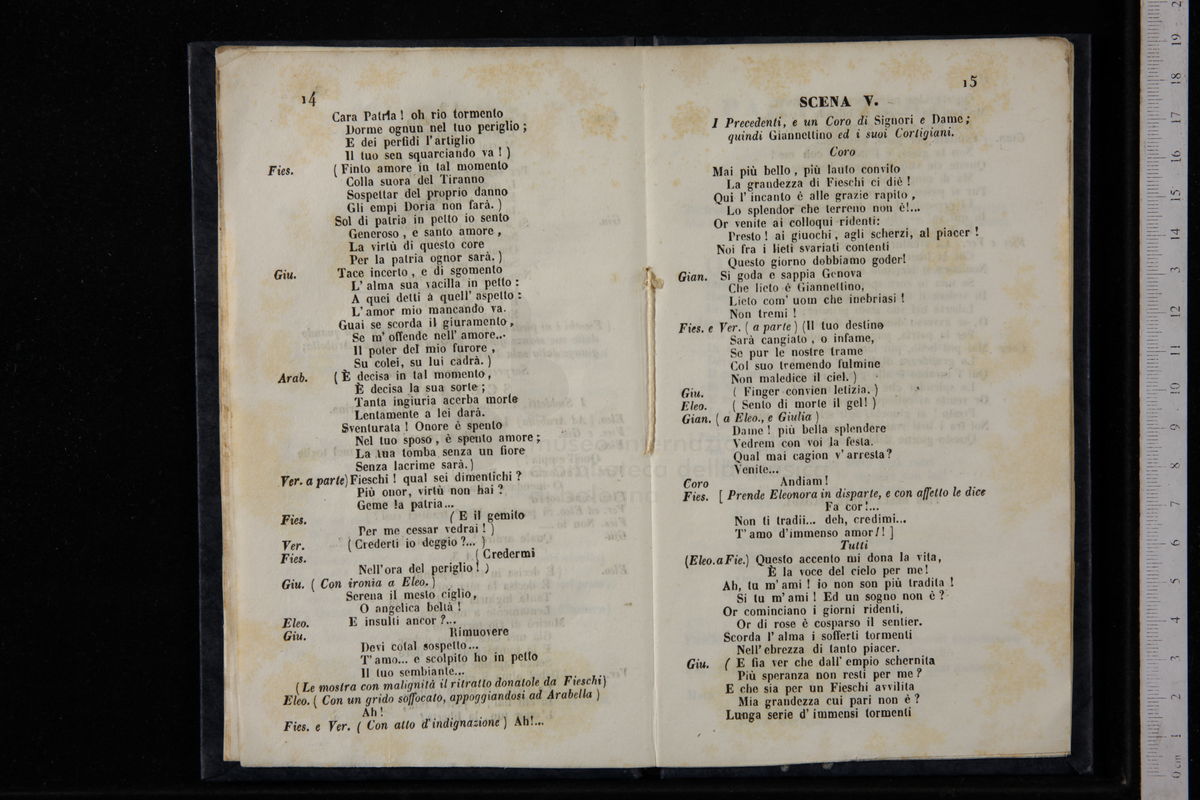 14
Cara Patria ! oh rio tormento
Dorme ognun nel tuo periglio ;
E dei perfidi l'artiglio
Il tuo sen squarciando va ! )
Fies. ( Finto amore in tal momento
Colla suora del Tiranno
Sospettar del proprio danno
Gli empi Doria non farà. )
Sol di patria in petto io sento
Generoso , e santo amore ,
La virtù di questo core
Per la patria ognor sarà. )
Giu. Tace incerto , e di sgomento
L' alma sua vacilla in petto :
A quei detti à quell' aspetto :
L' amor mio mancando va.
Guai se scorda il giuramento ,
Se m' offende nell' amore...
Il poter del mio furore ,
Su colei, su lui cadrà. )
Arab. ( È decisa in tal momento ,
È decisa la sua sorte ;
Tanta ingiuria acerba morte
Lentamente a lei darà.
Sventurata ! Onore è spento
Nel tuo sposo , è spento amore ;
La tua tomba senza un fiore
Senza lacrime sarà. )
Ver. a parte) Fieschi ! qual sei dimentichi ?
Più onor, virtù non hai ?
Geme la patria...
Fies. ( E il gemito
Per me cessar vedrai ! )
Ver. ( Crederti io deggio ?... )
Fies. ( Credermi
Nell'ora del periglio ! )
Giu. ( Con ironia a Eleo. )
Serena il mesto ciglio,
O angelica beltà !
Eleo. E insulti ancor ?...
Giu. Rimuovere
Devi cotal sospetto...
T' amo... e scolpito ho in petto
Il tuo sembiante...
( Le mostra con malignità il ritratto donatole da Fieschi)
Eleo. ( Con un grido soffocato, appoggiandosi ad Arabella )
Ah !
Fies. e Ver. ( Con atto d' indignazione ) Ah!...
15
SCENA V.
I Precedenti, e un Coro di Signori e Dame ;
quindi Giannettino ed i suoi Cortigiani.
Coro
Mai più bello , più lauto convito
La grandezza di Fieschi ci diè !
Qui l' incanto è alle grazie rapito ,
Lo splendor che terreno non è!...
Or venite ai colloqui ridenti:
Presto ! ai giuochi , agli scherzi, al piacer !
Noi fra i lieti svariati contenti
Questo giorno dobbiamo goder!
Gian. Si goda e sappia Genova
Che lieto é Giannettino,
Lieto com' uom che inebriasi !
Non tremi !
Fies. e Ver. ( a parte ) (Il tuo destino
Sarà cangiato , o infame,
Se pur le nostre trame
Col suo tremendo fulmine
Non maledice il ciel. )
Giu. ( Finger convien letizia. )
Eleo. ( Sento di morte il gel! )
Gian. ( a Eleo., e Giulia )
Dame ! più bella splendere
Vedrem con voi la festa.
Qual mai cagion v' arresta?
Venite...
Coro Andiam !
Fies. [ Prende Eleonora in disparte, e con affetto le dice
Fa cor !...
Non ti tradii... deh, credimi...
T' amo d'immenso amor!! ]
Tutti
(Eleo.aFie.) Questo accento mi dona la vita,
È la voce del cielo per me!
Ah, tu m' ami ! io non son più tradita !
Si tu m' ami ! Ed un sogno non è ?
Or cominciano i giorni ridenti,
Or di rose è cosparso il sentier.
Scorda l' alma i sofferti tormenti
Nell' ebrezza di tanto piacer.
Giu. ( E fia ver che dall' empio schernita
Più speranza non resti per me ?
E che sia per un Fieschi avvilita
Mia grandezza cui pari non è ?
Lunga serie d' immensi tormenti